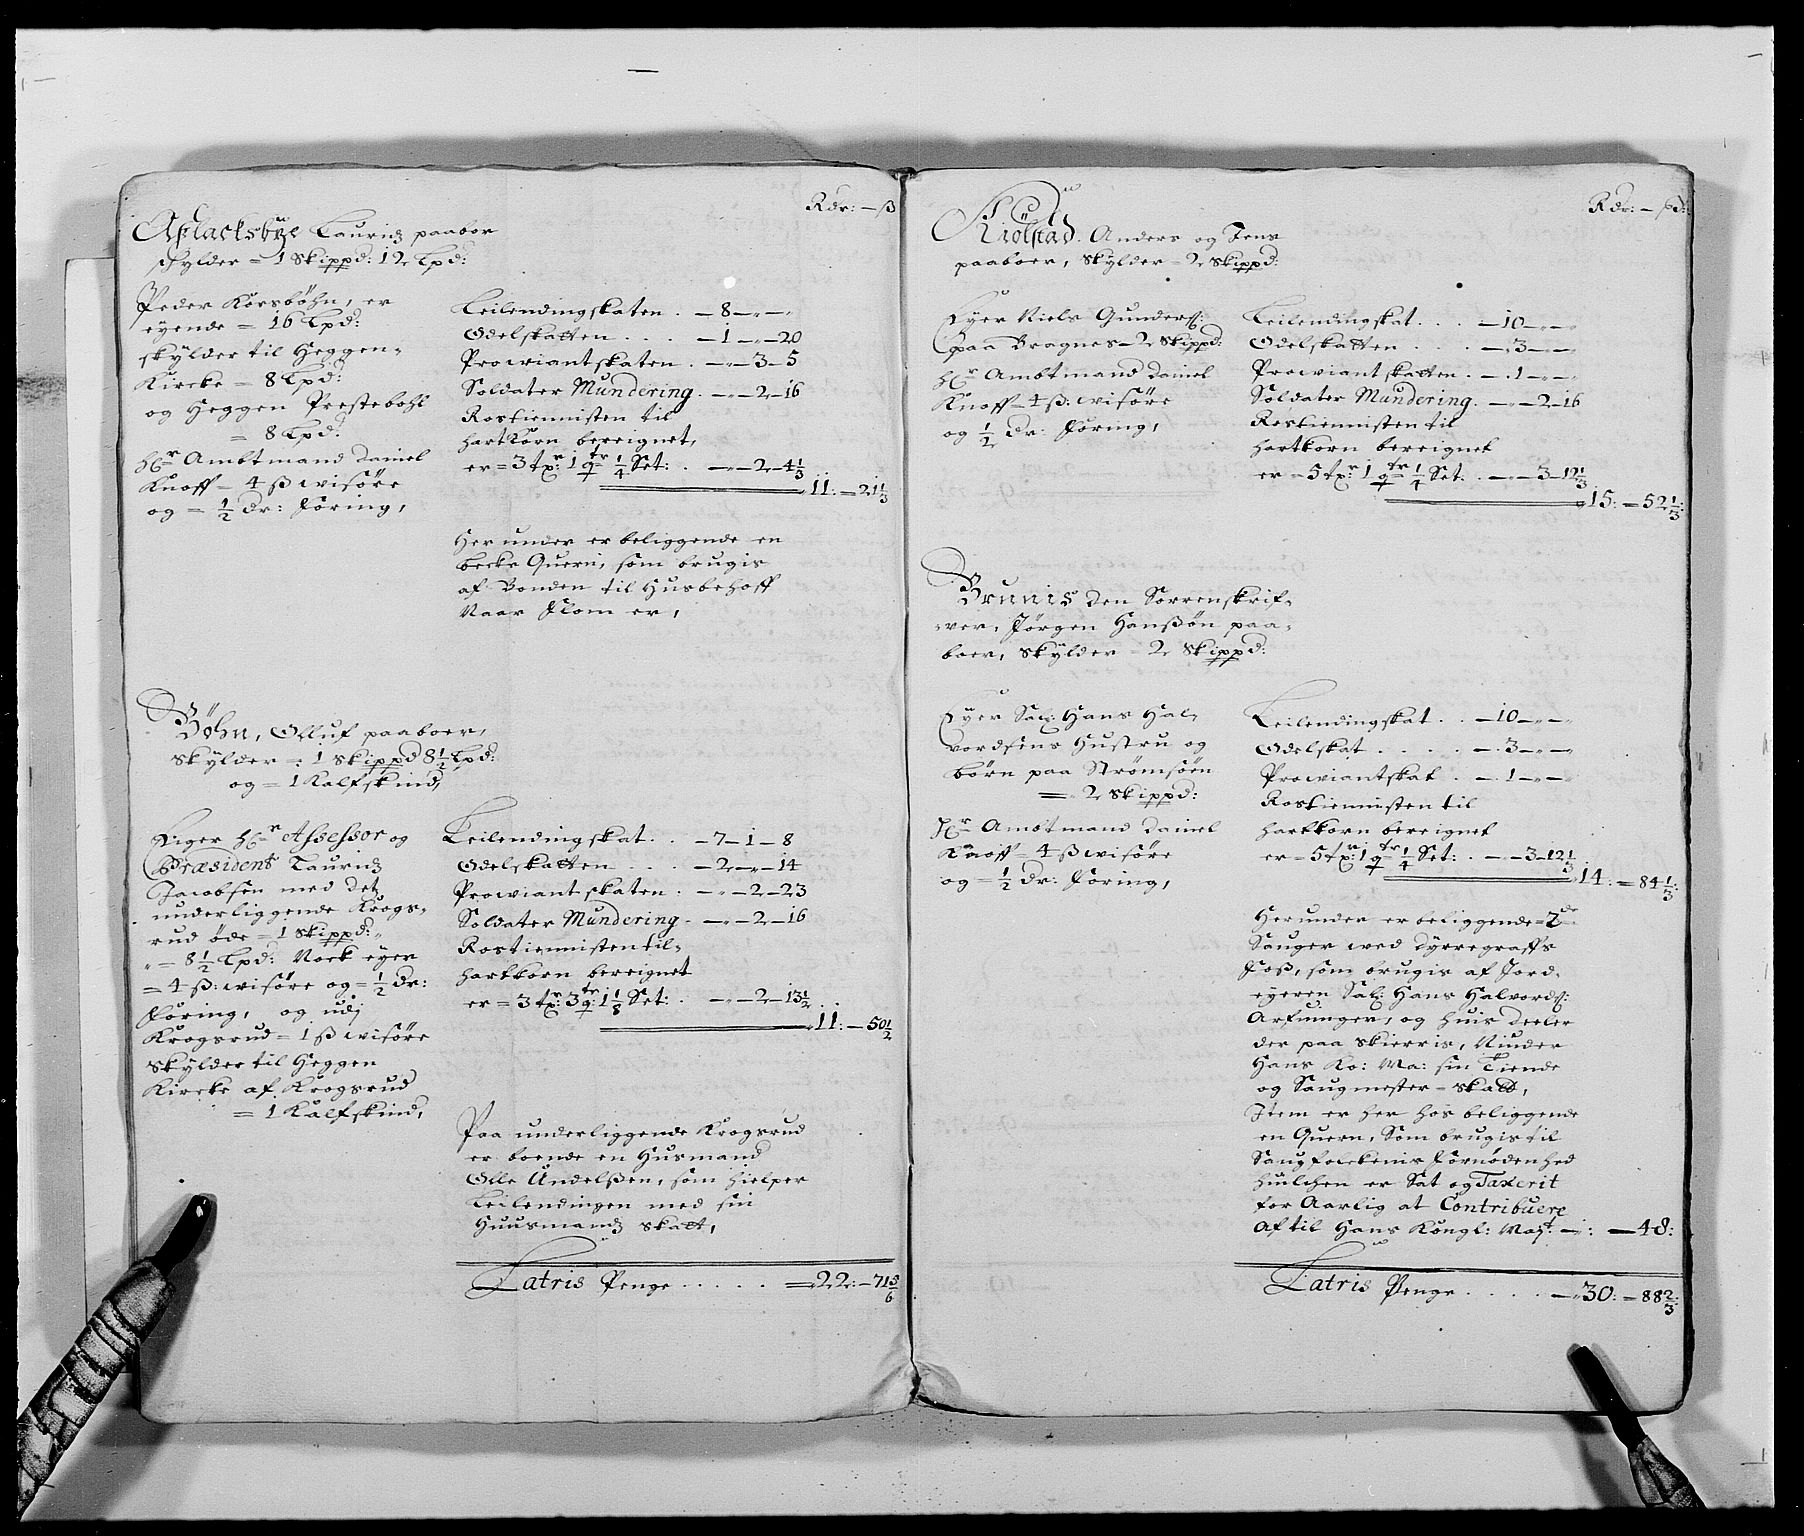 Rdr: – ß
Aslacksbÿe Lauridz paaboer
skylder = 1 Skippd: 12 Lpd:
Peder Korsbøhn, er
eÿende = 16 Lpd:
skÿlder til Heggen-
Kircke = 8 Lpd:
og Heggen Prestebohl
= 8 Lpd:
hr Ambtmand Daniel
Knoff = 4 ß wisøre
og = 1/2 dr: Foring,
Leilendingskaten . – 8 – „ – „
Odelskatten . . . . – 1 – „ – 20
Prowiantskaten . – „ – 3 – 5
Soldater Mundering . – „ – 2 – 16
Rostiennisten til
hartkorn bereignet,
er = 3 tr: 1 qtr 1/4 Set: . – „ – 2 – 4 1/3
11: – 21 1/3
Her under er beliggende en
becke Quern, som brugis
af Bonden til Husbehoff
Naar Flom er,
Böhn, Olluf paaboer,
skÿlder = 1 Skippd 8 1/2 Lpd:
og = 1 Kalfskind,
Eiger hr Assessor og
Præsident Lauridz
Jacobsen med det
underliggende Krogs-
rud øde = 1 Skippd:
„ = 8 1/2 Lpd: Nock eÿer
= 4 ß: wisøre og = 1/2 dr:
Foring, og udj
Krogsrud = 1 ß wisøre
skÿlder til Heggen
Kircke af Krogsrud
= 1 Kalfskind,
Leilendingskat . . – 7 – 1 – 8
Odelskatten . . . – 2 – „ – 14
Prowiantskaten . – „ – 2 – 23
Soldater Mundering . – „ – 2 – 16
Rostiennisten til-
hartkorn bereignet
er = 3 tr: 3 qtr: 1 1/8 Set: . – „ – 2 – 13 1/2
11: – 50 1/2
Paa underliggende Krogsrud
er boende en Husmand
Olle Andelßen, som hielper
Leilendingen med sin
Huusmandz skatt,
Latris Penge . . . . . = 22: – 71 5/6
Rdr: – ßd:
Kiölstad. Anders og Jens
paaboer, skÿlder = 2 Skippd:
Eÿer Niels Gunderß:
paa Bragnes = 2 Skippd:
hr Ambtmand Daniel
Knoff = 4 ß: wisøre
og 1/2 dr: Foring,
Leilendingskat . . . – 10 – „ – „
Odelskatten . . . . – 3 – „ – „
Prowiantskatten . – 1 – „ – „
Soldater Mundering . – „ – 2 – 16
Rostiennisten til
hartkorn bereignet
er = 5 tr: 1 qtr 1/4 Set: . – „ – 3 – 12 1/3
15: – 52 1/3:
Brunis den Sorrenskrif-
wer, Jörgen Hanßøn paa-
boer, skÿlder = 2 Skippd:
Eÿer Sal: Hans Hal-
vordsens Hustru og
börn paa Strømsøen
= 2 Skippd:
Hr Ambtmand Daniel
Knoff = 4 ß wisøre
og = 1/2 dr: Foring,
Leilendingskat . . – 10 – „ – „
Odelskat . . . . . – 3 – „ – „
Prowiantskat . – 1 – „ – „
Rostiennisten til
hartkorn bereignet
er = 5 tr: 1 qtr 1/4 Set: . – „ – 3 – 12 1/3
14: = 84 1/3:
Her under er beliggende = 2de
Sauger wed Dÿrregraffs
Foss, som brugis af Jord-
eÿeren Sal: Hans Halvordß:
Arfuinger, og huis deeler
der paa skierris, Niuder
Hans Ko: Ma: sin Tiende
og Saugmester = skatt,
Item er her hos beliggende
en Quern, Som brugis til
Saugfolckenis Fornødenhed
huilchen er Sat og Taxerit
for Aarlig at Contribuere
Af til Hans Kongl: Mayt: – „ : – 48:
Latris Penge . . . . – 30: – 88 2/3: